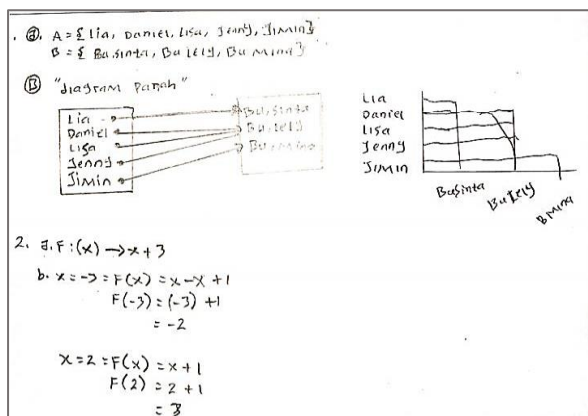 . a. A = { Lia, Daniel, Lisa, Jenny, Jimin }
B = { Bu Sinta, Bu Lely, Bu Mina }
B "diagram Panah"
Lia
Daniel
Lisa
Jenny
Jimin
Bu Sinta
Bu Lely
Bu Mina
Lia
Daniel
Lisa
Jenny
Jimin
Businta
Bu lely
B Mina
2. a. F : (x) → x + 3
b. x = -3 = F(x) = x - x + 1
F(-3) = (-3) + 1
= -2
x = 2 = F(x) = x + 1
F(2) = 2 + 1
= 3